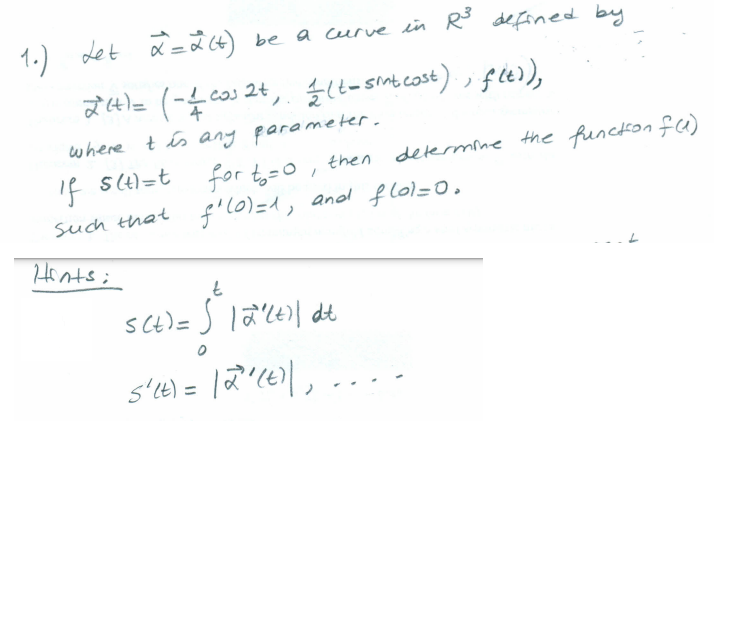 1.) Let α⃗ = α⃗(t) be a curve in R³ defined by
α⃗(t) = (-1/4 cos 2t, 1/2 (t - sint cost), f(t)),
where t is any parameter.
If s(t)=t for t₀=0, then determine the function f(t)
such that f'(0)=1, and f(0)=0.
Hints:
s(t) = ∫₀ᵗ |α⃗'(t)| dt
s'(t) = |α⃗'(t)|, ....